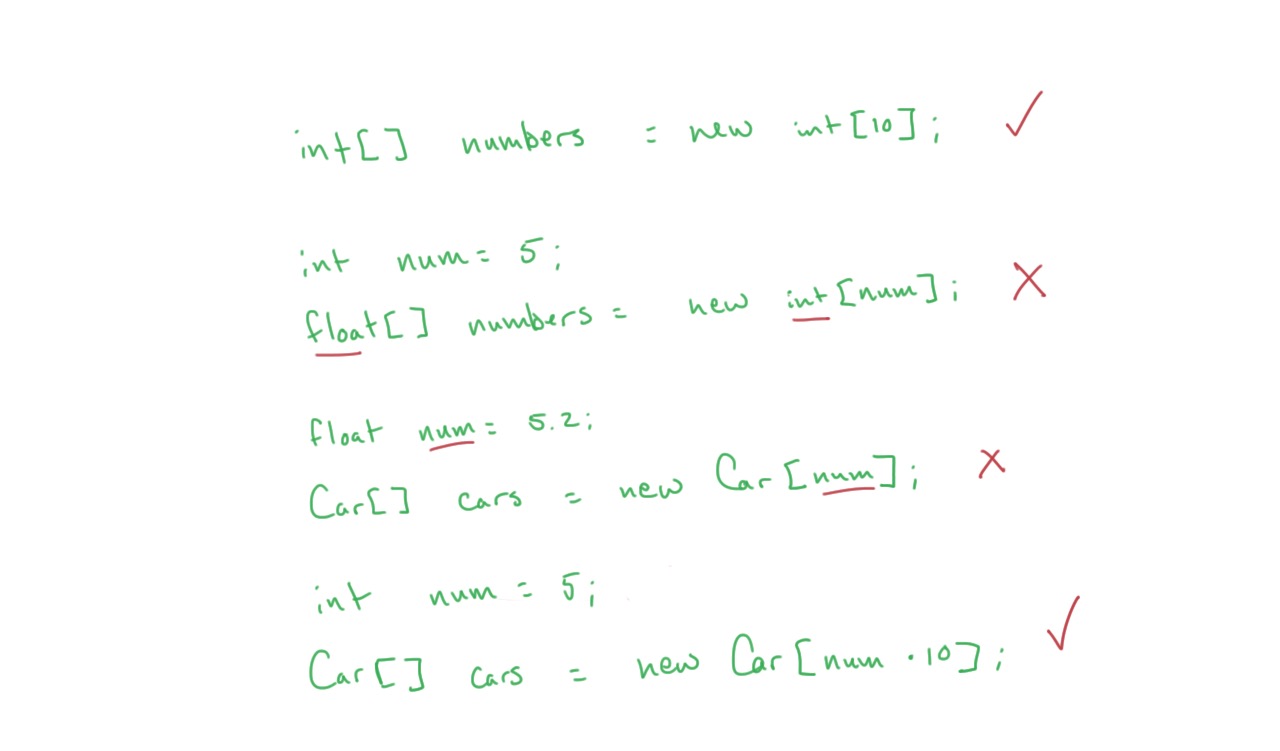 int[] numbers = new int[10]; ✓
int num = 5;
float[] numbers = new int[num]; X
float num = 5.2;
Car[] cars = new Car[num]; X
int num = 5;
Car[] cars = new Car[num · 10]; ✓